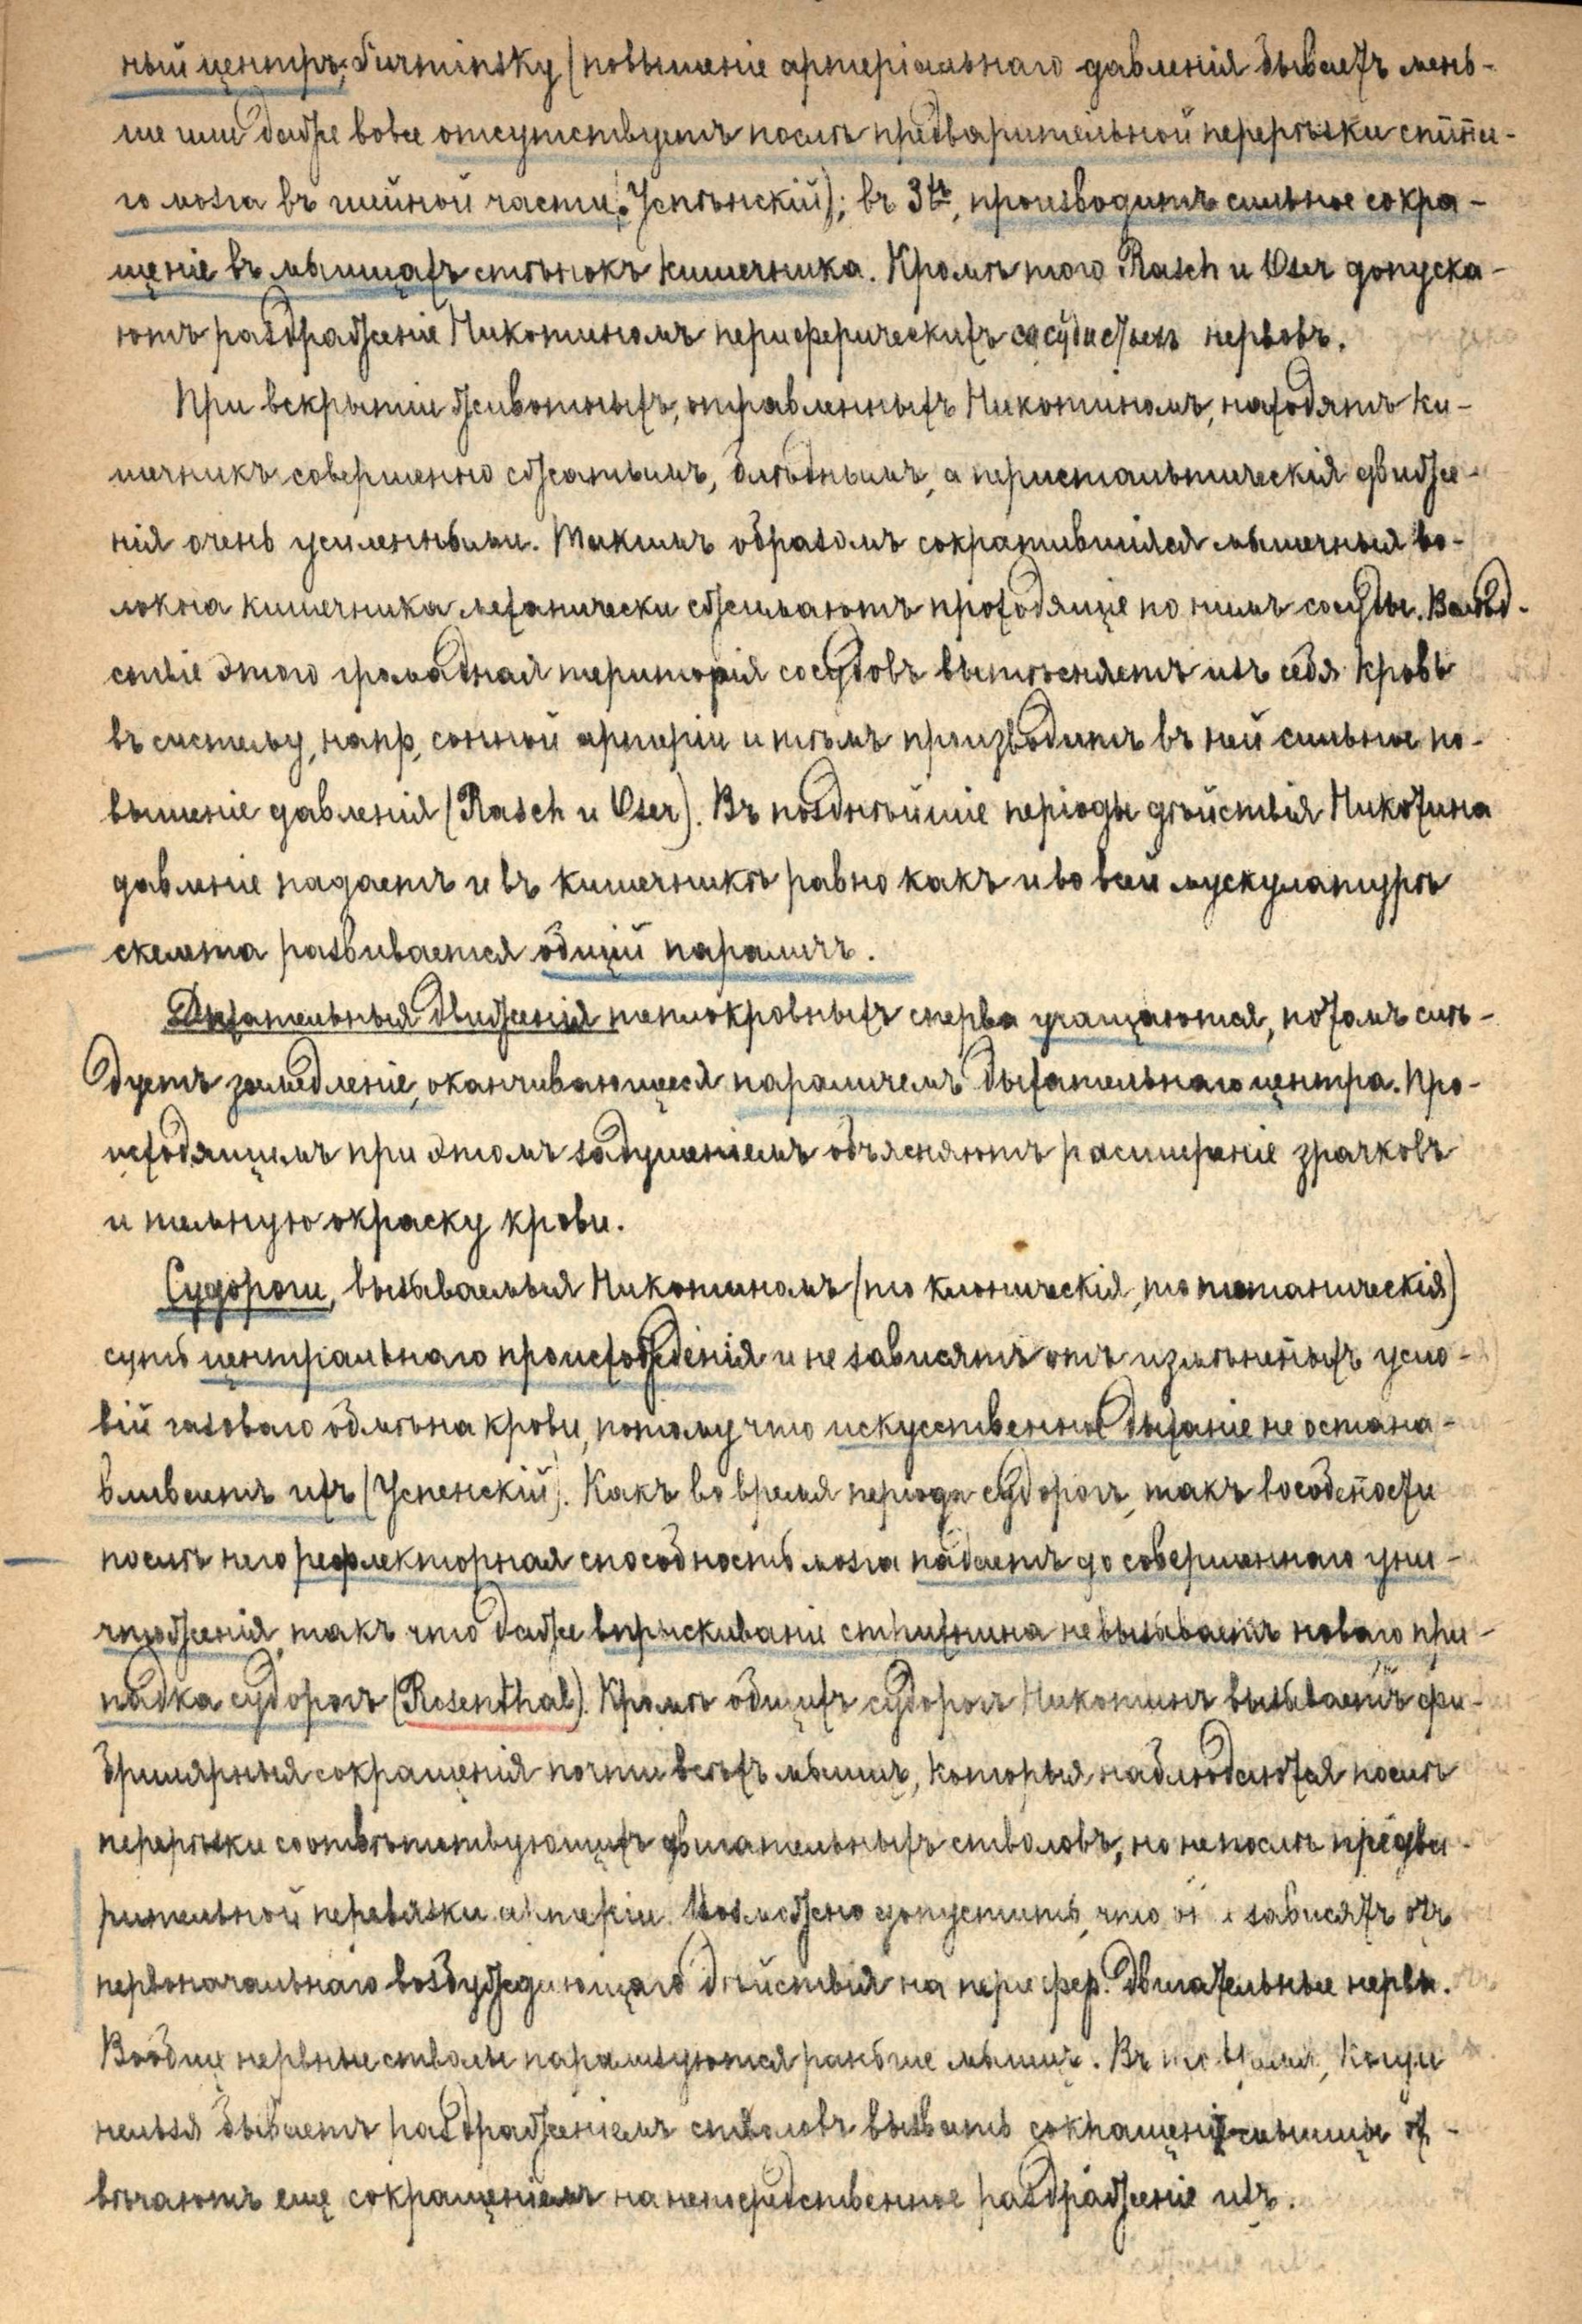 ный центръ, Surminsky (повышеніе артеріальнаго давленія бываетъ мень-
ше или даже вовсе отсутствуетъ послѣ предварительной перерѣзки спинн-
го мозга въ шейной части, Успѣнскій); въ 3хъ, производитъ сильное сокра-
щеніе въ мышцахъ стѣнокъ кишечника. Кромѣ того Rasch и Oser допуска-
ютъ раздраженіе Никотиномъ периферическихъ сосудистыхъ нервовъ.
При вскрытіи животныхъ, отравленныхъ Никотиномъ, находятъ ки-
шечникъ совершенно сжатымъ, блѣднымъ, а перистальтическія движе-
нія очень усиленными. Такимъ образомъ сократившіяся мышечныя во-
локна кишечника механически сжимаютъ проходящіе по нимъ сосуды. Вслѣд-
ствіе этого громадная територія сосудовъ вытѣсняетъ изъ себя кровь
въ систему, напр, сонной артеріи и тѣмъ производитъ въ ней сильное по-
вышеніе давленія (Rasch и Oser). Въ позднѣйшіе періоды дѣйствія Никотина
давленіе падаетъ и въ кишечникѣ равно какъ и во всей мускулатурѣ
скелета развивается общій параличъ.
Дыхательныя движенія теплокровныхъ сперва учащаются, потомъ слѣ-
дуетъ замедленіе, оканчивающееся параличемъ дыхательнаго центра. Про-
исходящимъ при этомъ задушеніемъ объясняютъ расширеніе зрачковъ
и темную окраску крови.
Судороги, вызываемыя Никотиномъ (то клоническія, то тетаническія)
суть центральнаго происхожденія и не зависятъ отъ измѣненныхъ усло-
вій газоваго обмѣна крови, потому что искусственное дыханіе не остана-
вливаетъ ихъ (Успенскій). Какъ во время періода судорогъ, такъ въ особенности
послѣ него рефлекторная способность мозга падаетъ до совершеннаго уни-
чтоженія, такъ что даже впрыскиваніе стрихнина не вызываетъ новаго при-
падка судорогъ (Rosenthal). Кромѣ общихъ судорогъ Никотинъ вызываетъ фи-
брилярныя сокращенія почти всѣхъ мышцъ, которыя наблюдаются послѣ
перерѣзки соотвѣтствующихъ двигательныхъ стволовъ, но не послѣ предва-
рительной перевязки артеріи. Возможно допустить, что они зависятъ отъ
первоначальнаго возбуждающаго дѣйствія на перифер. двигательные нервы.
Вообще нервные стволы парализуются раньше мышцъ. Въ то время, когда
нельзя бываетъ раздраженіемъ стволовъ вызвать сокращенія мышцы от-
вѣчаютъ еще сокращеніемъ на непосредственное раздраженіе ихъ.